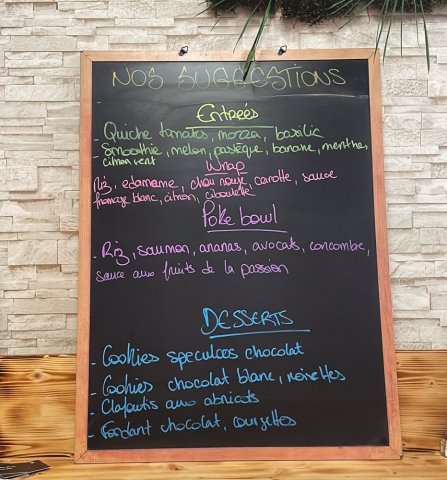 NOS SUGGESTIONS
Entrées
- Quiche tomates, mozza, basilic
- Smoothie, melon, pastèque, banane, menthe,
citron vert
Wrap
Riz, edamame, chou rouge, carotte, sauce
fromage blanc, citron, ciboulette
Poke bowl
- Riz, saumon, ananas, avocats, concombre,
sauce aux fruits de la passion
DESSERTS
- Cookies speculoos chocolat
- Cookies chocolat blanc, noisettes
- Clafoutis aux abricots
- Fondant chocolat, courgettes